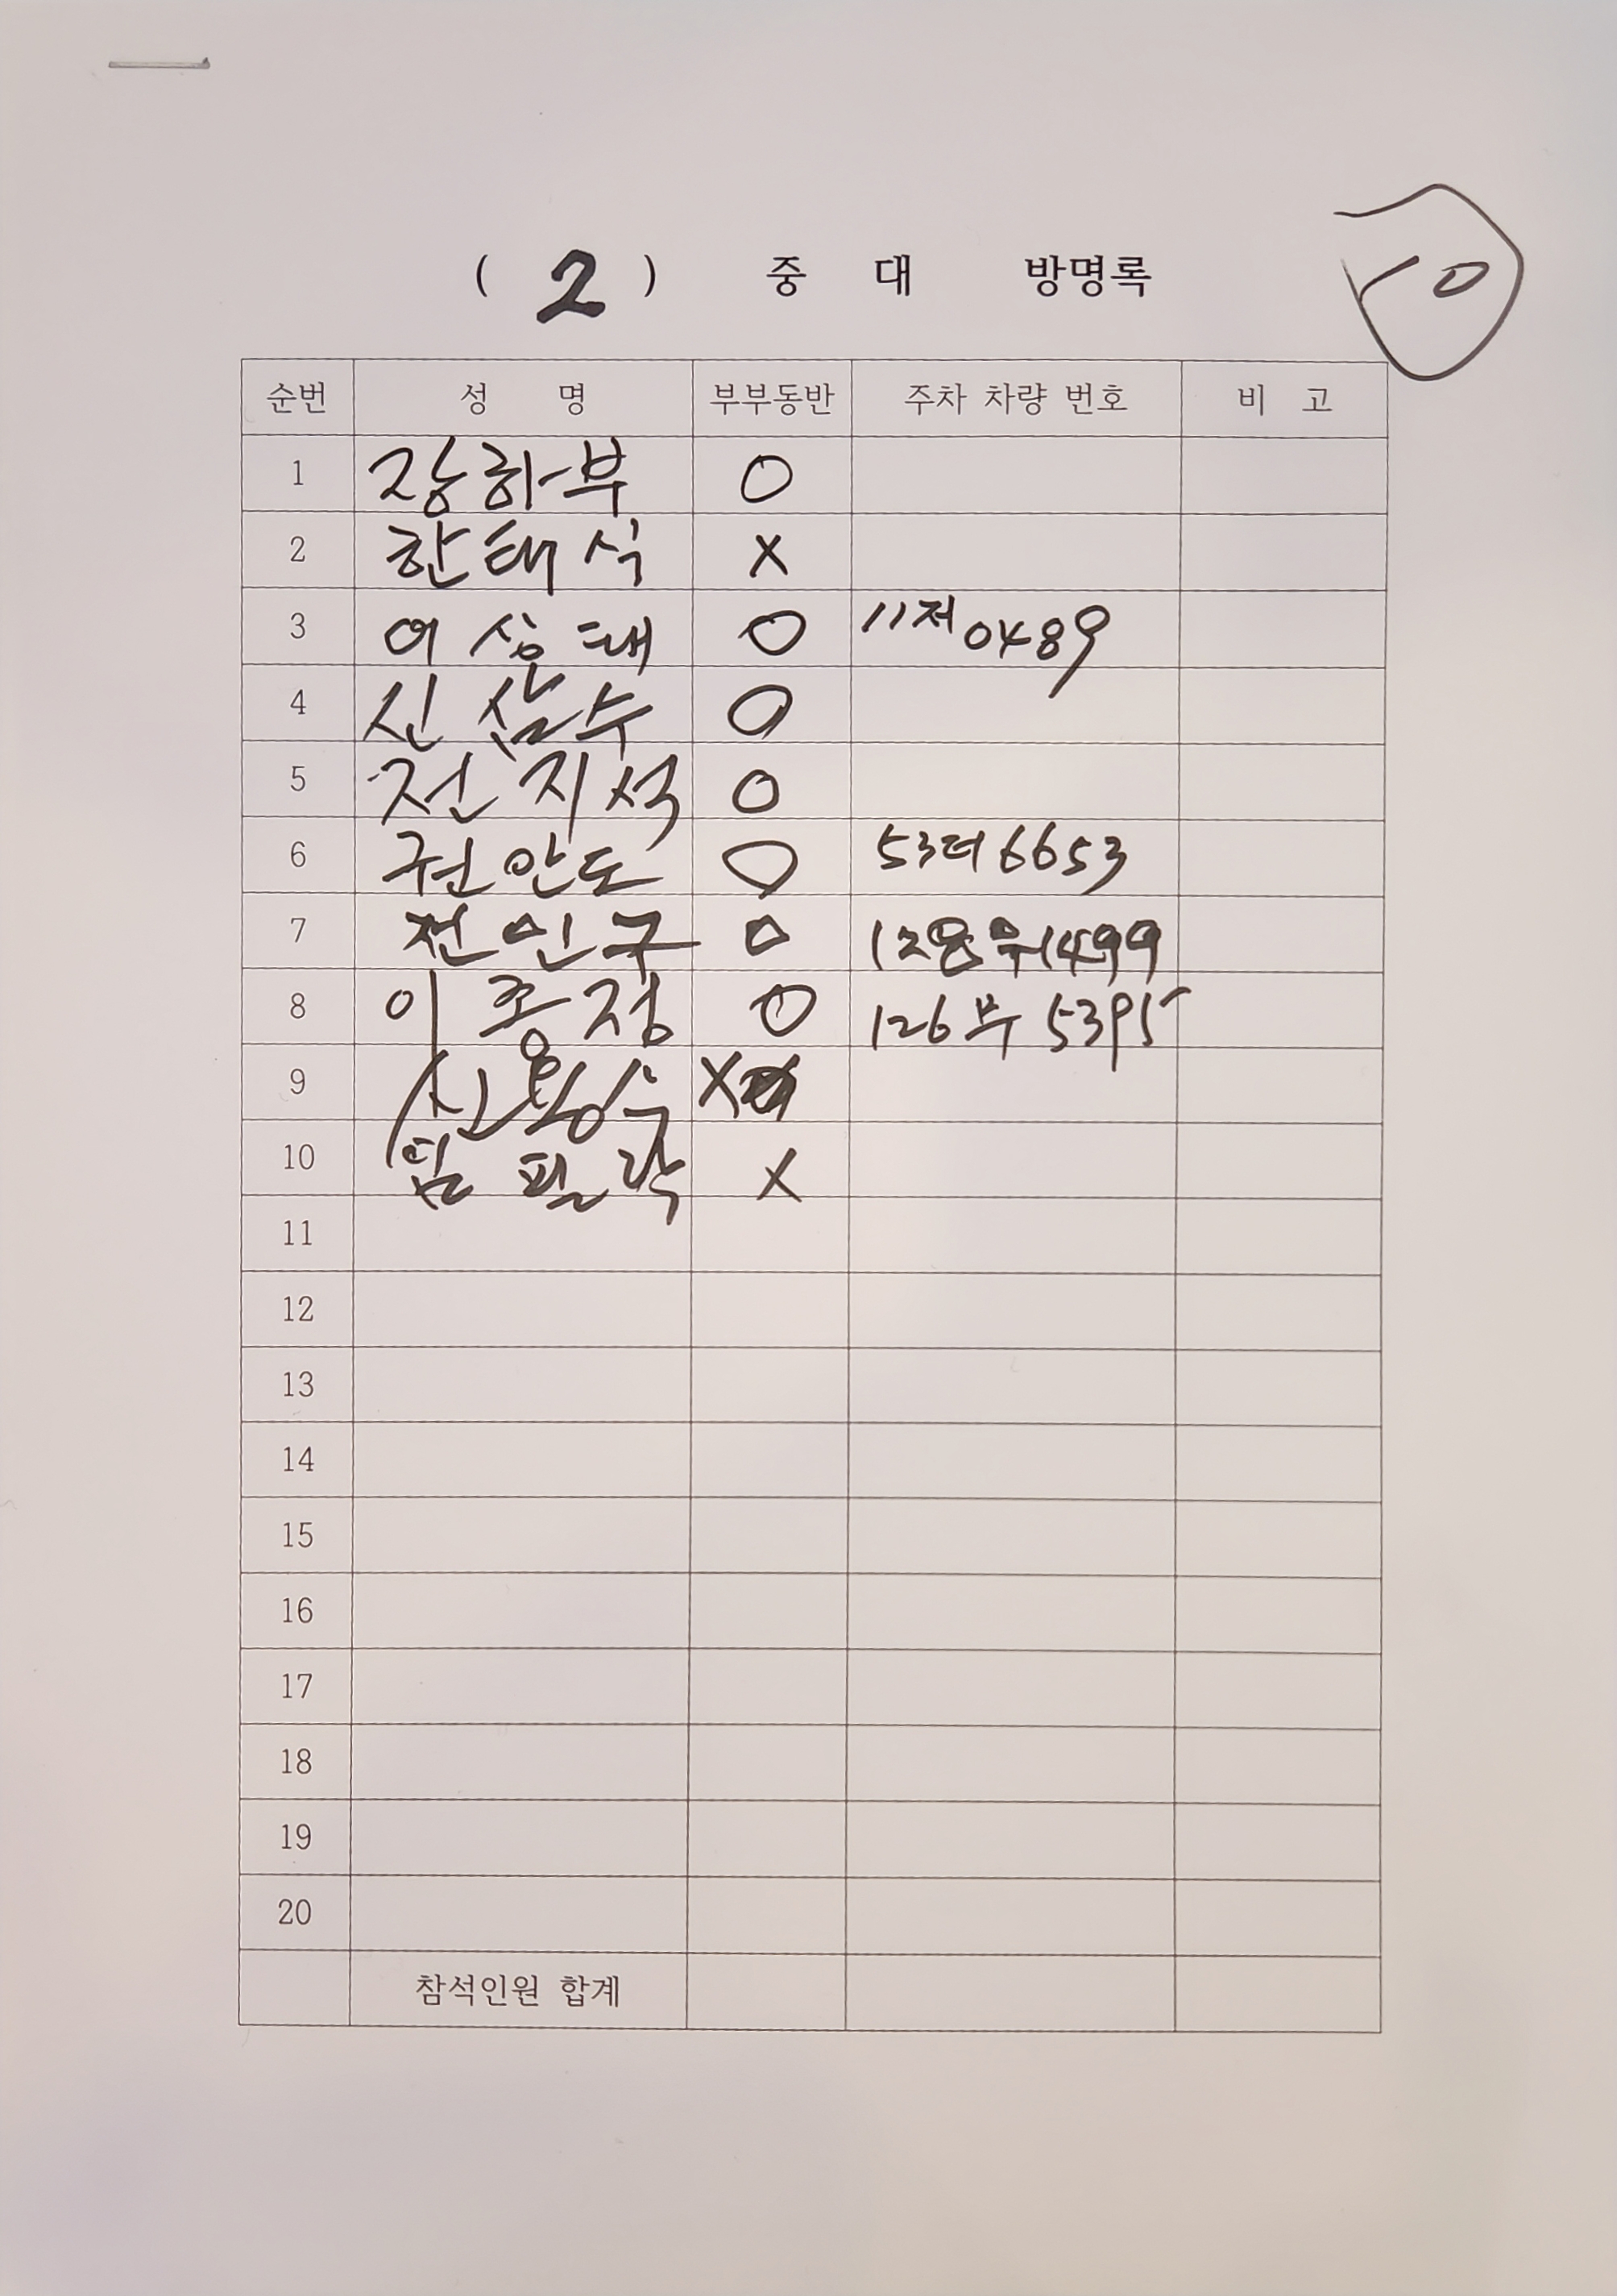 ( 2 ) 중 대 방명록
10
순번 성 명 부부동반 주차 차량 번호 비 고
1 장하부 O
2 한태식 X
3 여상태 O 11저0489
4 신삼수 O
5 전지석 O
6 권안도 O 53더6653
7 전인구 O 128무1499
8 이종정 O 126부5395
9 X
10 임필락 X
11
12
13
14
15
16
17
18
19
20
참석인원 합계